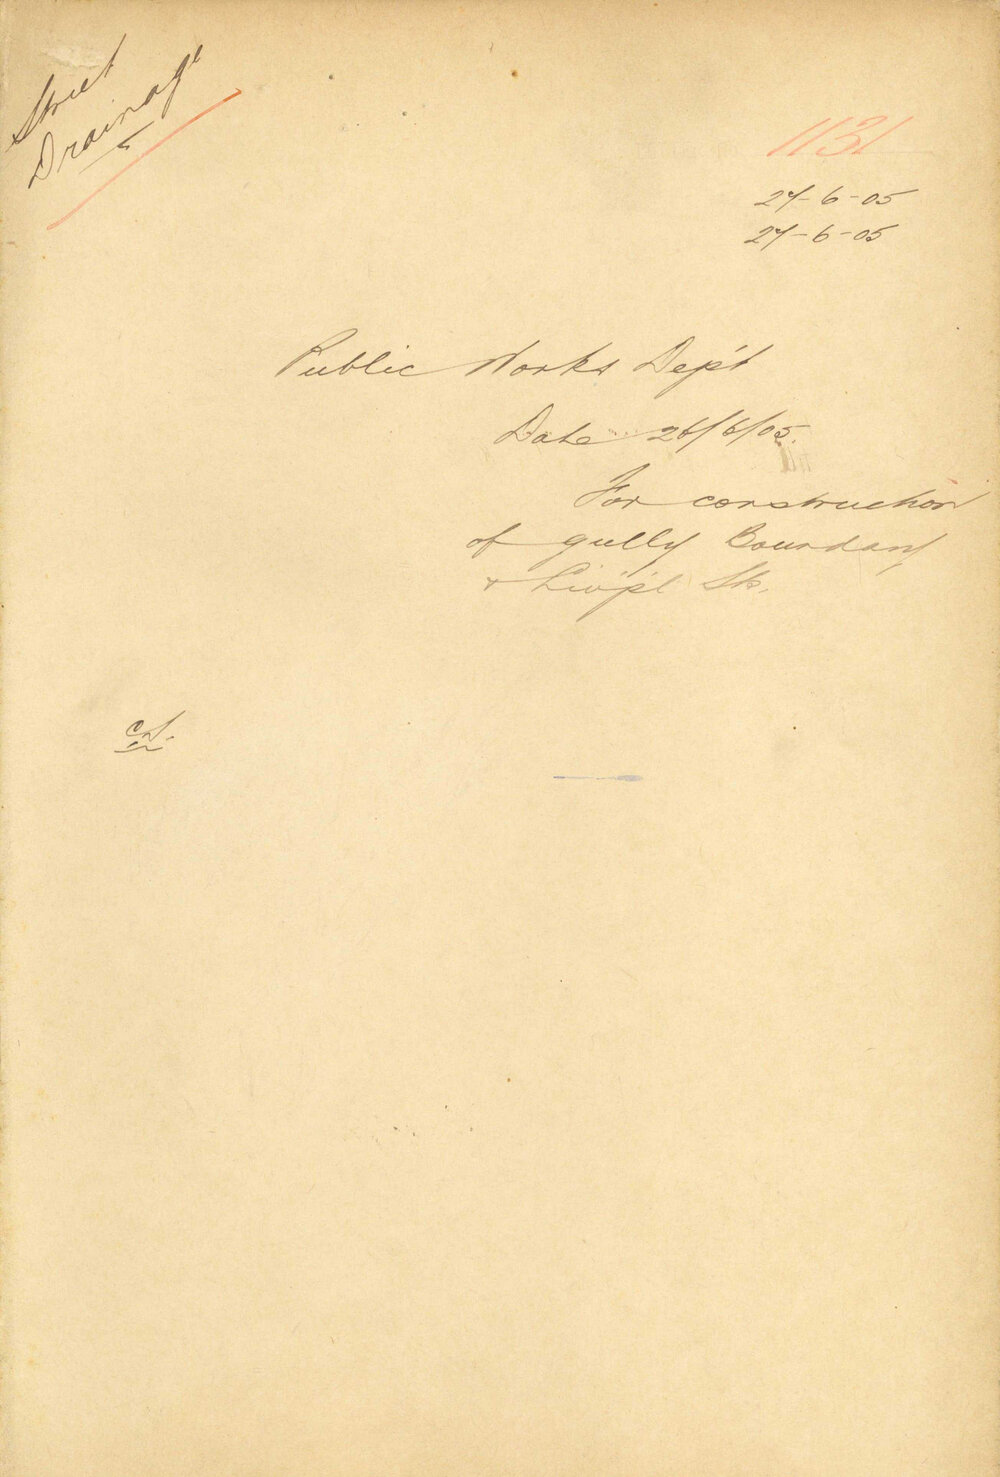 Street
Drainage
1131
27-6-05
27-6-05
Public Works Dep't
Date 26/6/05.
For construction
of gully Boundary
+ Liv'p'l Sts.